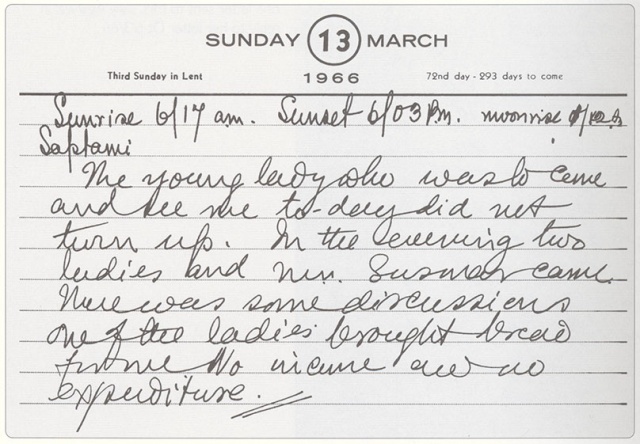 SUNDAY 13 MARCH
Third Sunday in Lent 1966 72nd day - 293 days to come
Sunrise 6/17 a.m. Sunset 6/03 P.m. moonrise
Saptami
The young lady who was to come
and see me to-day did not
turn up. In the evening two
ladies and Mr. came.
There was some discussions
one of the ladies brought bread
for me No income and no
expenditure.